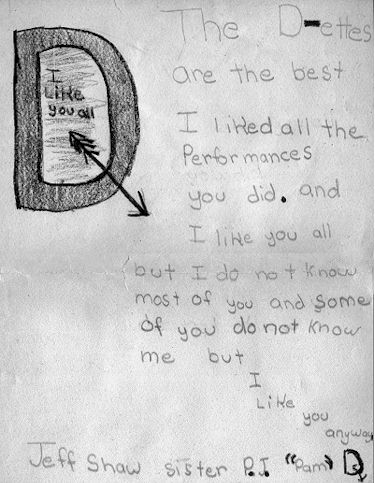 I
Like
you all
The D-ettes
are the best
I liked all the
Performances
you did. and
I like you all
but I do not know
most of you and some
of you do not know
me but
I
Like
you
anyway
Jeff Shaw sister P.J. "Pam"